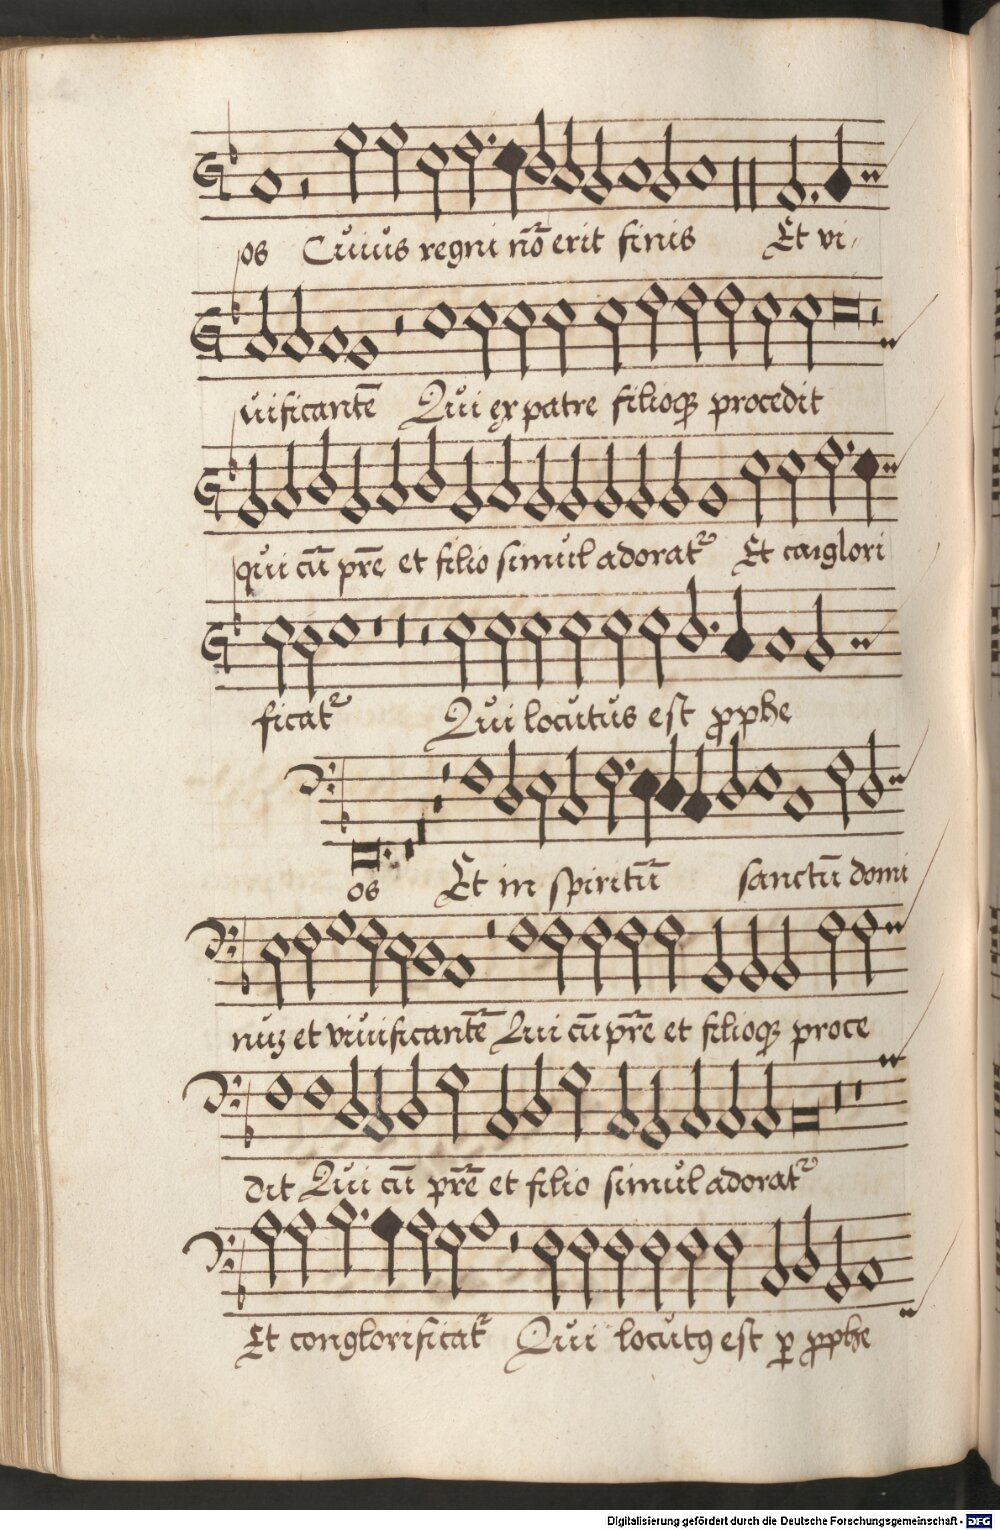 os Cuius regni nō erit finis Et vi
uificantē Qui ex patre filioqꝫ procedit
qui cū prē et filio simul adorat᷑ Et cōglori
ficat᷑ Qui locutus est ꝓphe
os Et in spiritū sanctū domi
nuꝫ et viuificantē Qui cū prē et filioqꝫ proce
dit Qui cū prē et filio simul adorat᷑
Et conglorificat᷑ Qui locutꝯ est ꝑ ꝓphe
Digitalisierung gefördert durch die Deutsche Forschungsgemeinschaft - DFG